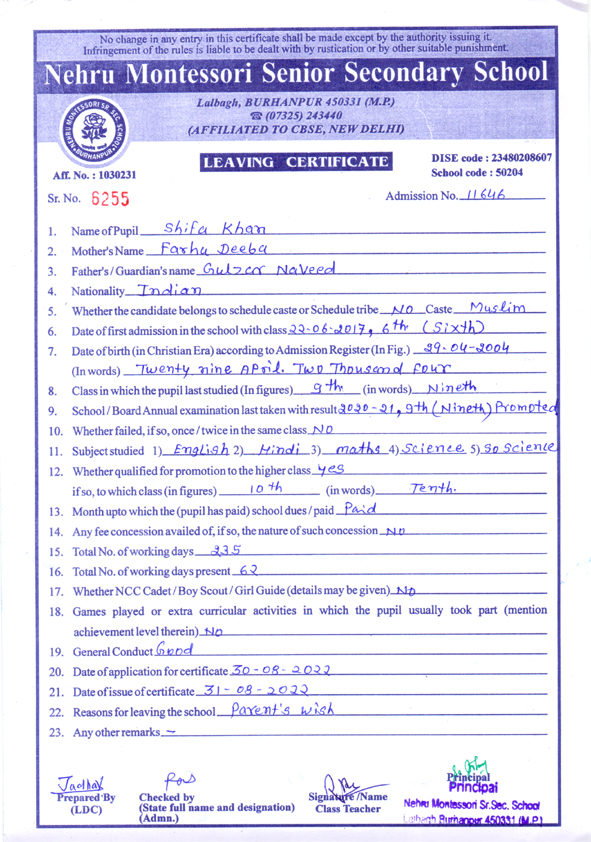 No change in any entry in this certificate shall be made except by the authority issuing it.
Infringement of the rules is liable to be dealt with by rustication or by other suitable punishment.
Nehru Montessori Senior Secondary School
Lalbagh, BURHANPUR 450331 (M.P.)
☎ (07325) 243440
(AFFILIATED TO CBSE, NEW DELHI)
NEHRU MONTESSORI SR. SEC. SCHOOL
BURHANPUR
LEAVING CERTIFICATE
DISE code : 23480208607
School code : 50204
Aff. No. : 1030231
Sr. No. 6255
Admission No. 11646
1. Name of Pupil Shifa Khan
2. Mother's Name Farha Deeba
3. Father's / Guardian's name Gulzar Naveed
4. Nationality Indian
5. Whether the candidate belongs to schedule caste or Schedule tribe NO Caste Muslim
6. Date of first admission in the school with class 22-06-2017, 6th (Sixth)
7. Date of birth (in Christian Era) according to Admission Register (In Fig.) 29-04-2004
(In words) Twenty nine April. Two Thousand four
8. Class in which the pupil last studied (In figures) 9th (in words) Nineth
9. School / Board Annual examination last taken with result 2020-21, 9th (Nineth) Promoted
10. Whether failed, if so, once / twice in the same class NO
11. Subject studied 1) English 2) Hindi 3) maths 4) Science 5) So Science
12. Whether qualified for promotion to the higher class yes
if so, to which class (in figures) 10th (in words) Tenth.
13. Month upto which the (pupil has paid) school dues / paid Paid
14. Any fee concession availed of, if so, the nature of such concession No
15. Total No. of working days 235
16. Total No. of working days present 62
17. Whether NCC Cadet / Boy Scout / Girl Guide (details may be given) No
18. Games played or extra curricular activities in which the pupil usually took part (mention
achievement level therein) No
19. General Conduct Good
20. Date of application for certificate 30-08-2022
21. Date of issue of certificate 31-08-2022
22. Reasons for leaving the school Parent's wish
23. Any other remarks –
Jadhav
Prepared By
(LDC)
Checked by
(State full name and designation)
(Admn.)
Signature / Name
Class Teacher
Principal
Principal
Nehru Montessori Sr.Sec. School
Lalbagh Burhanpur 450331 (M.P.)